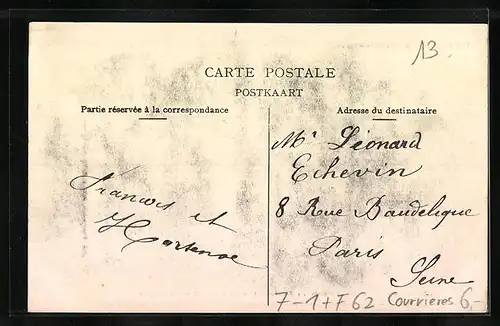 13.
CARTE POSTALE
POSTKAART
Partie réservée à la correspondance
Adresse du destinataire
Mr Léonard
Echevin
8 Rue Baudelique
Paris
Seine
Francois et
Hortense
7-1+F62 Courrieres 6,-